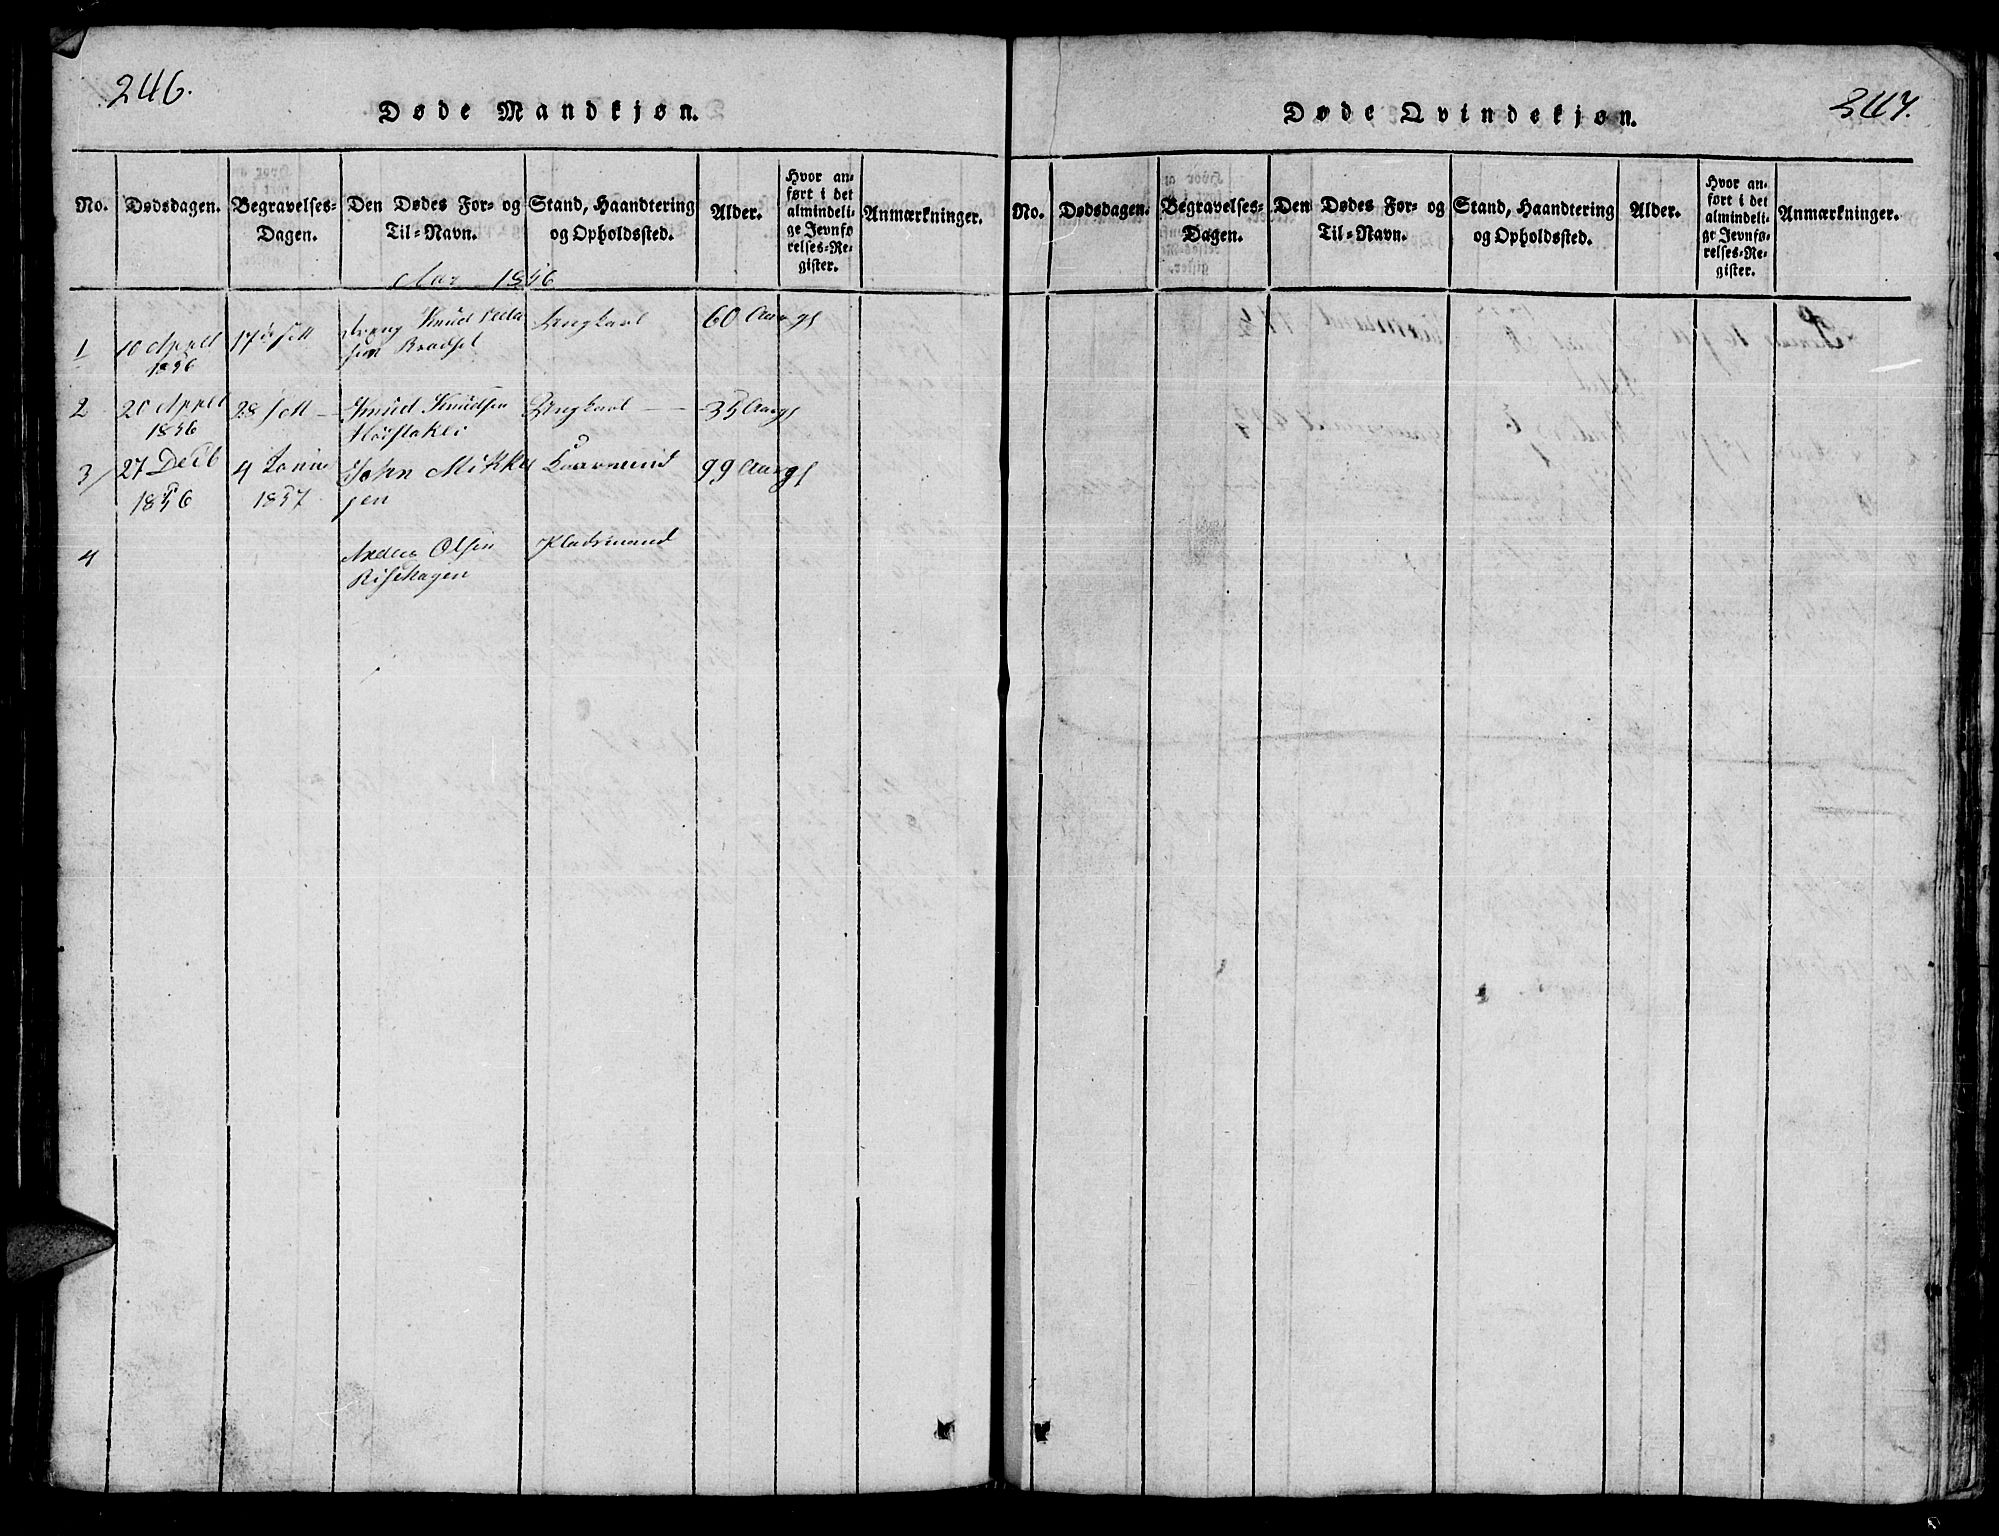 246.
Døde Mandkjøn.
No.
Dødsdagen.
Begravelses-
Dagen.
Den Dødes For- og
Til-Navn.
Stand, Haandtering
og Opholdssted.
Alder.
Hvor an-
ført i det
almindeli-
ge Jevnfø
relses-Re-
gister.
Anmærkninger.
Aar 1856
1
10 Appel
1856
17de
Knud
60 Aargs
2
20 Appel
1856
28
Knud Knudsen
Ungkarl
35 Aargs
3
27 Decb
1856
4
1857
John Mikkel
sen
99 Aargs
4
Anders Olsen
Risehagen
347.
Døde Qvindekjøn.
No.
Dødsdagen.
Begravelses-
Dagen.
Den Dødes For- og
Til-Navn.
Stand, Haandtering
og Opholdssted.
Alder.
Hvor an-
ført i det
almindeli-
ge Jevnfø-
relses-Re-
gister.
Anmærkninger.